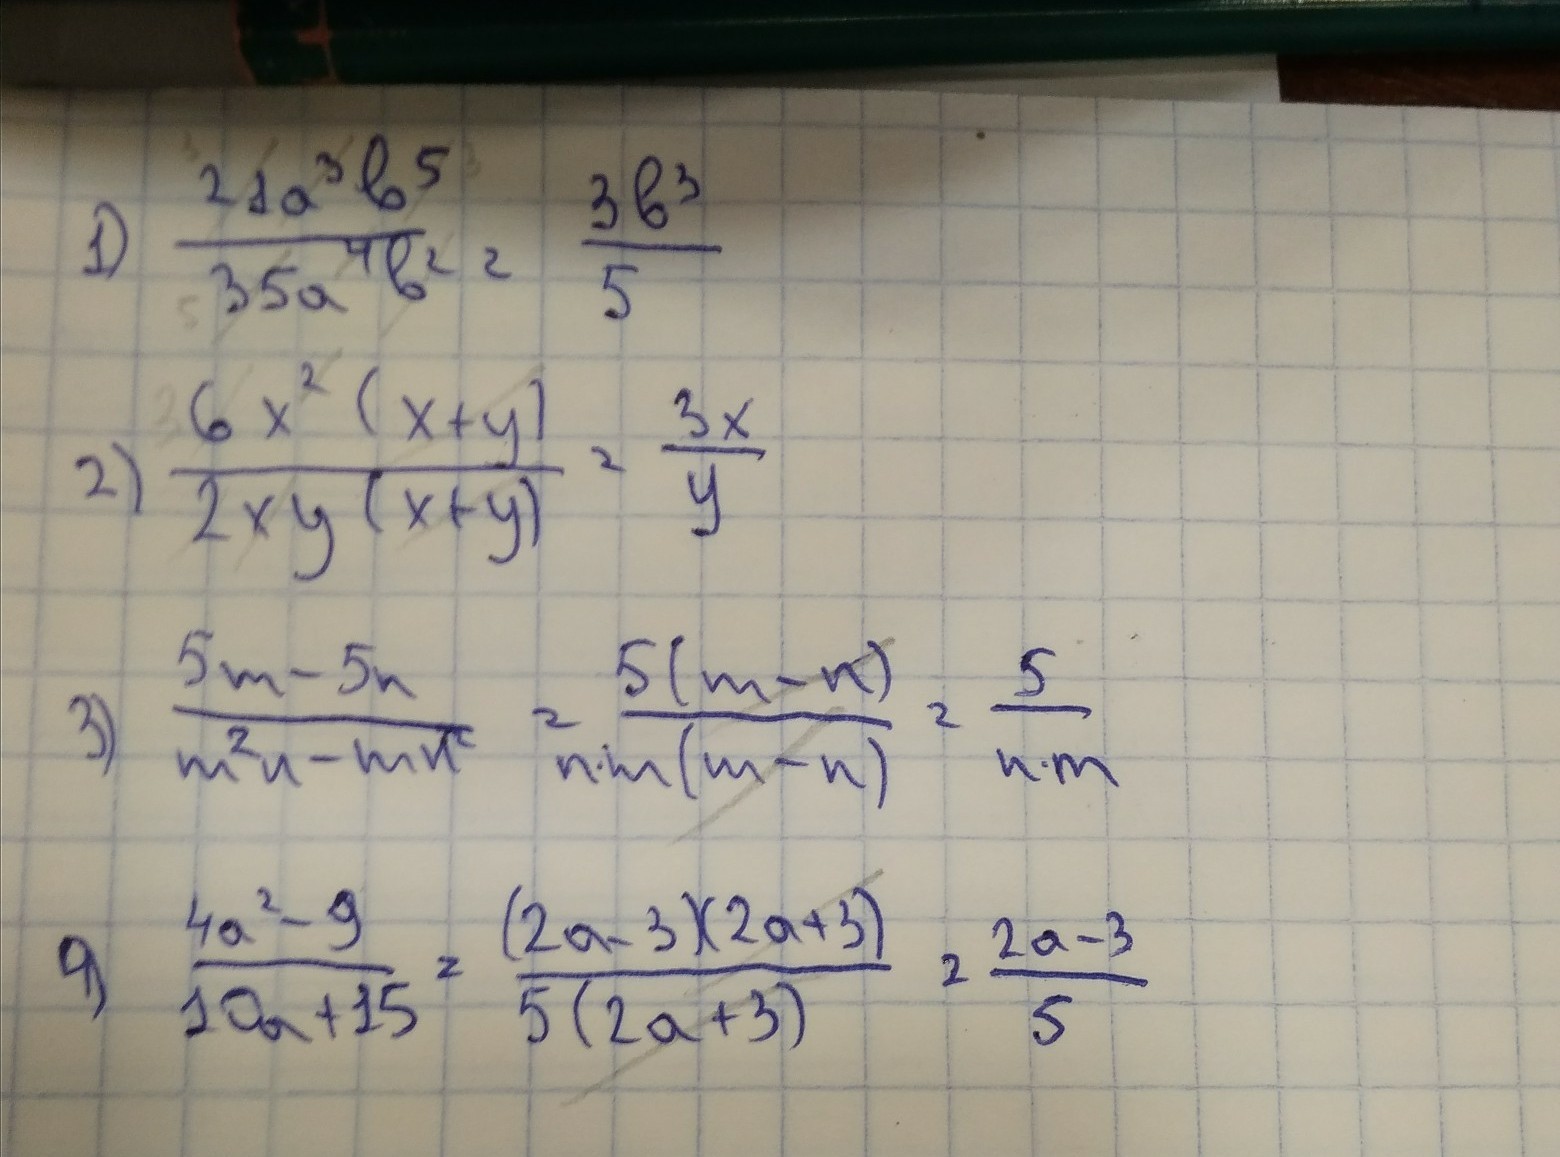 1) 21a³b⁵/35a⁴b² = 3b³/5
2) 6x²(x+y)/2xy(x+y) = 3x/y
3) 5m-5n/m²n-mn² = 5(m-n)/n·m(m-n) = 5/n·m
4) 4a²-9/10a+15 = (2a-3)(2a+3)/5(2a+3) = 2a-3/5